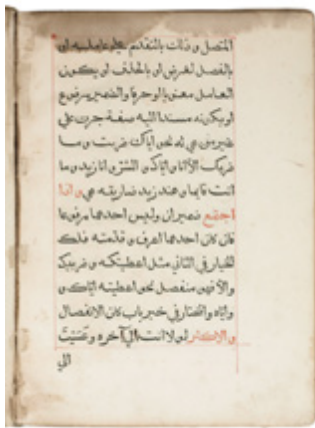 المتصل وذلك بالتقدم على عامله او
بالفصل لغرض او بالحذف او يكون
العامل معنويا او حرفا والضمير مرفوع
او بكونه مسندا اليه صفة جرت على
غير من هي له نحو اياك ضربت وما
ضربك الا انا واياك والشر وانا زيد وما
انت قايما وهند زيد ضاربته هي واذا
اجتمع ضميران وليس احدهما مرفوعا
فان كان احدهما اعرف وقدمته فلك
الخيار في الثاني مثل اعطيتكه وضربيك
والا فهو منفصل نحو اعطيته اياك و
واياه والمختار في خبر باب كان الانفصال
والاكثر لولا انت الى آخره وعسيت
الى